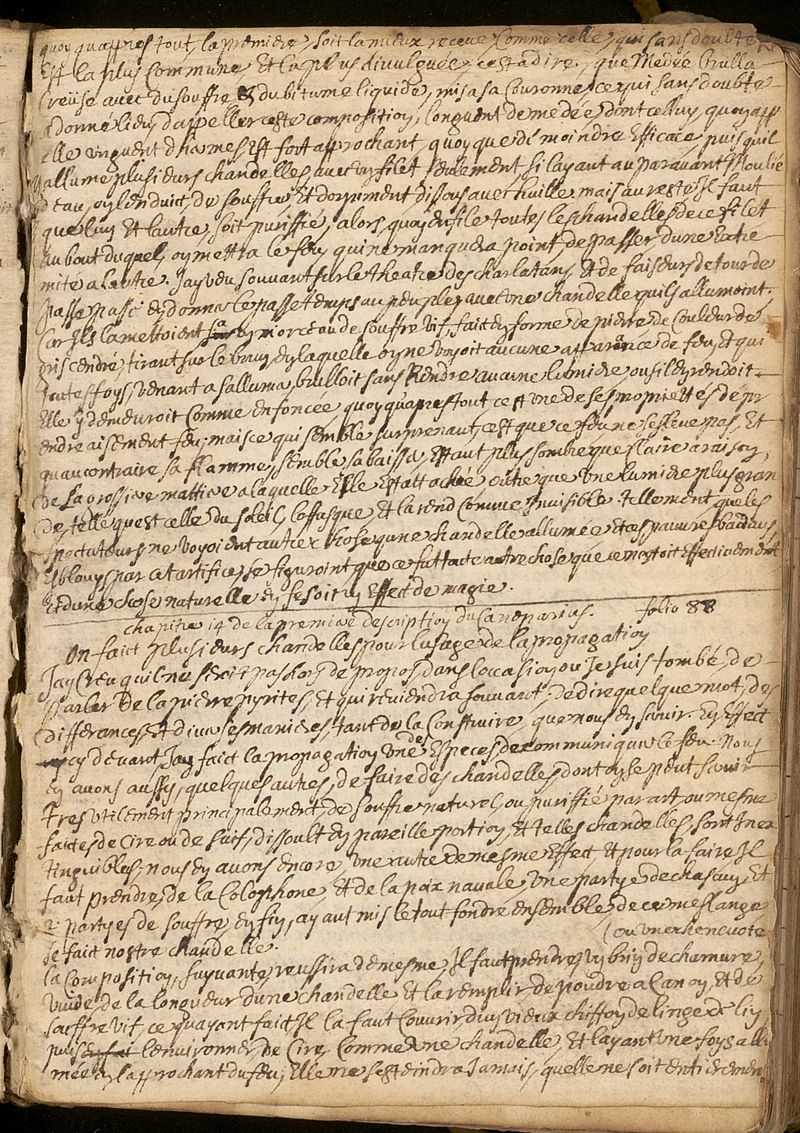 quoy quappres tout, la premiere, soit la mieux receue, comme celle, qui sans doubte
Est la plus commune, Et la plus divulguée, cest a dire, que Medée brulla
Creuse avec du souffre & du bitume liquide, mis a sa Couronne ce qui sans doubte
a donné lieu dappeller ceste composition, longuent de medée, dont celluy, quoy app
elle unguent dhames Est fort approchant, quoy que de moindre Efficace, puis quil
allume plusieurs chandelles avec un filet seulement, si layant au paravant Moulié
deau, on lenduict de souffre, Et dorpiment dissous avec huille, mais au reste Il faut
que luy Et lautre, soit puriffié, alors, quoy enfile toutes les chandelles de ce filet
au bout duquel, on mettra le feu, qui ne manquera point de passer dune Extre
mité a lautre. Jay veu souvant sur le theatre des charlatans, et de faiseurs de tour de
passe passe en donner le passe temps au peuple, avec une chandelle quils allumoint.
Car Ils la mettoient sur un morceau de souffre vif, fait en forme de pierre, de Couleur de
gris cendré, tirant sur le brun, en laquelle on ne voyoit aucune apparance de feu, Et qui
toutes foys, venant a sallumer, brulloit sans Rendre aucune lumiere, ou sil en rendoit
Elle y demeuroit comme enfoncée, quoy quapres tout, cest une de ses proprietés de pr
endre aisement feu, mais ce qui semble surprenant, cest que ce feu ne seslève pas, Et
quau contraire sa flamme, semble sabaisser, Estant plus sombre que claire a raison,
de la grossiere mattiere a laquelle Elle Est attachée outre que une lumiere plus gran
de telle quest celle du soleil, loffusque Et la rend comme Invisible. tellement que les
spectateurs ne voyoient autre chose qune chandelle allumée Et ces pauvres badaus,
Esblouys par cet artifice, se figuroint que ce fut toute autre chose que ce nestoit Effectivement
Et dune chose naturelle, en fesoit un Effect de magie.
chapitre 14 de la premiere description du Caneparius. folio 88
On faict plusieurs chandelles pour lusage de la propagation
Jay Creu quil ne seroit pas hors de propos, dans loccasion ou Je suis tombé, de
parler De la pierre pyrites, Et qui reviendra souvant, de dire quelque mot, des
differances, Et diverses manieres, tant de la Construire, que nous en servir. En Effect
cy devant Jay faict la propagation une des Especes de communiquer le feu. Nous
en avons aussy, quelques autres, de faire des chandelles dont on se peut servir
tres utilement, principalement, de souffre naturel, ou puriffié par art, ou mesme
faites, de Cire ou de suif, dissoult en pareille portion, Et telles chandelles, sont Inex
tinguibles, nous en avons encore, une autre de mesme Effect, Et pour la faire Il
faut prendre, de la Colophone, Et de la poix navale, une partye de chascun, Et
2 partyes de souffre, en fin, ayant mis le tout fondre ensemble, de ce meslange
se faict nostre chandelle.
(ou une chenevote
la Composition, suyvante, reussira de mesme, Il faut prendre, un brin de chanvre,
vuide, de la longueur dune chandelle Et la remplir de poudre a Canon, Et de
souffre vif, ce quayant faict Il la faut couvrir dun vieux chiffon de linge de lin
puis lenvironner de Cire, Comme une chandelle, Et layant une foys allu
mée en lapprochant du feu, Elle ne sesteindra Jamais, quelle ne soit entierement